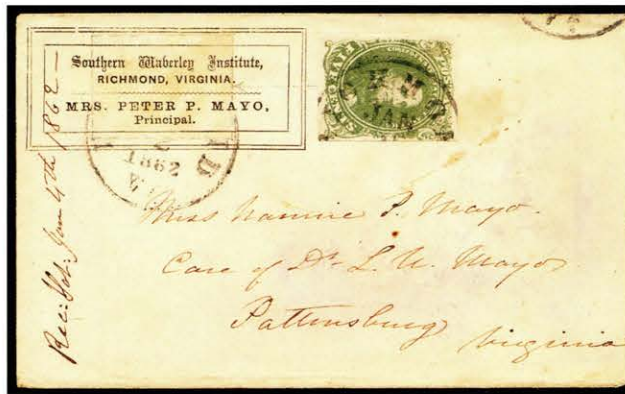 Southern Waverley Institute,
RICHMOND, VIRGINIA.
MRS. PETER P. MAYO,
Principal.
1862
JAN
Rec: Sat: Jan 4th 1862 —
Miss Nannie P. Mayo.
Care of Dr. L. W. Mayo
Pattensburg
Virginia